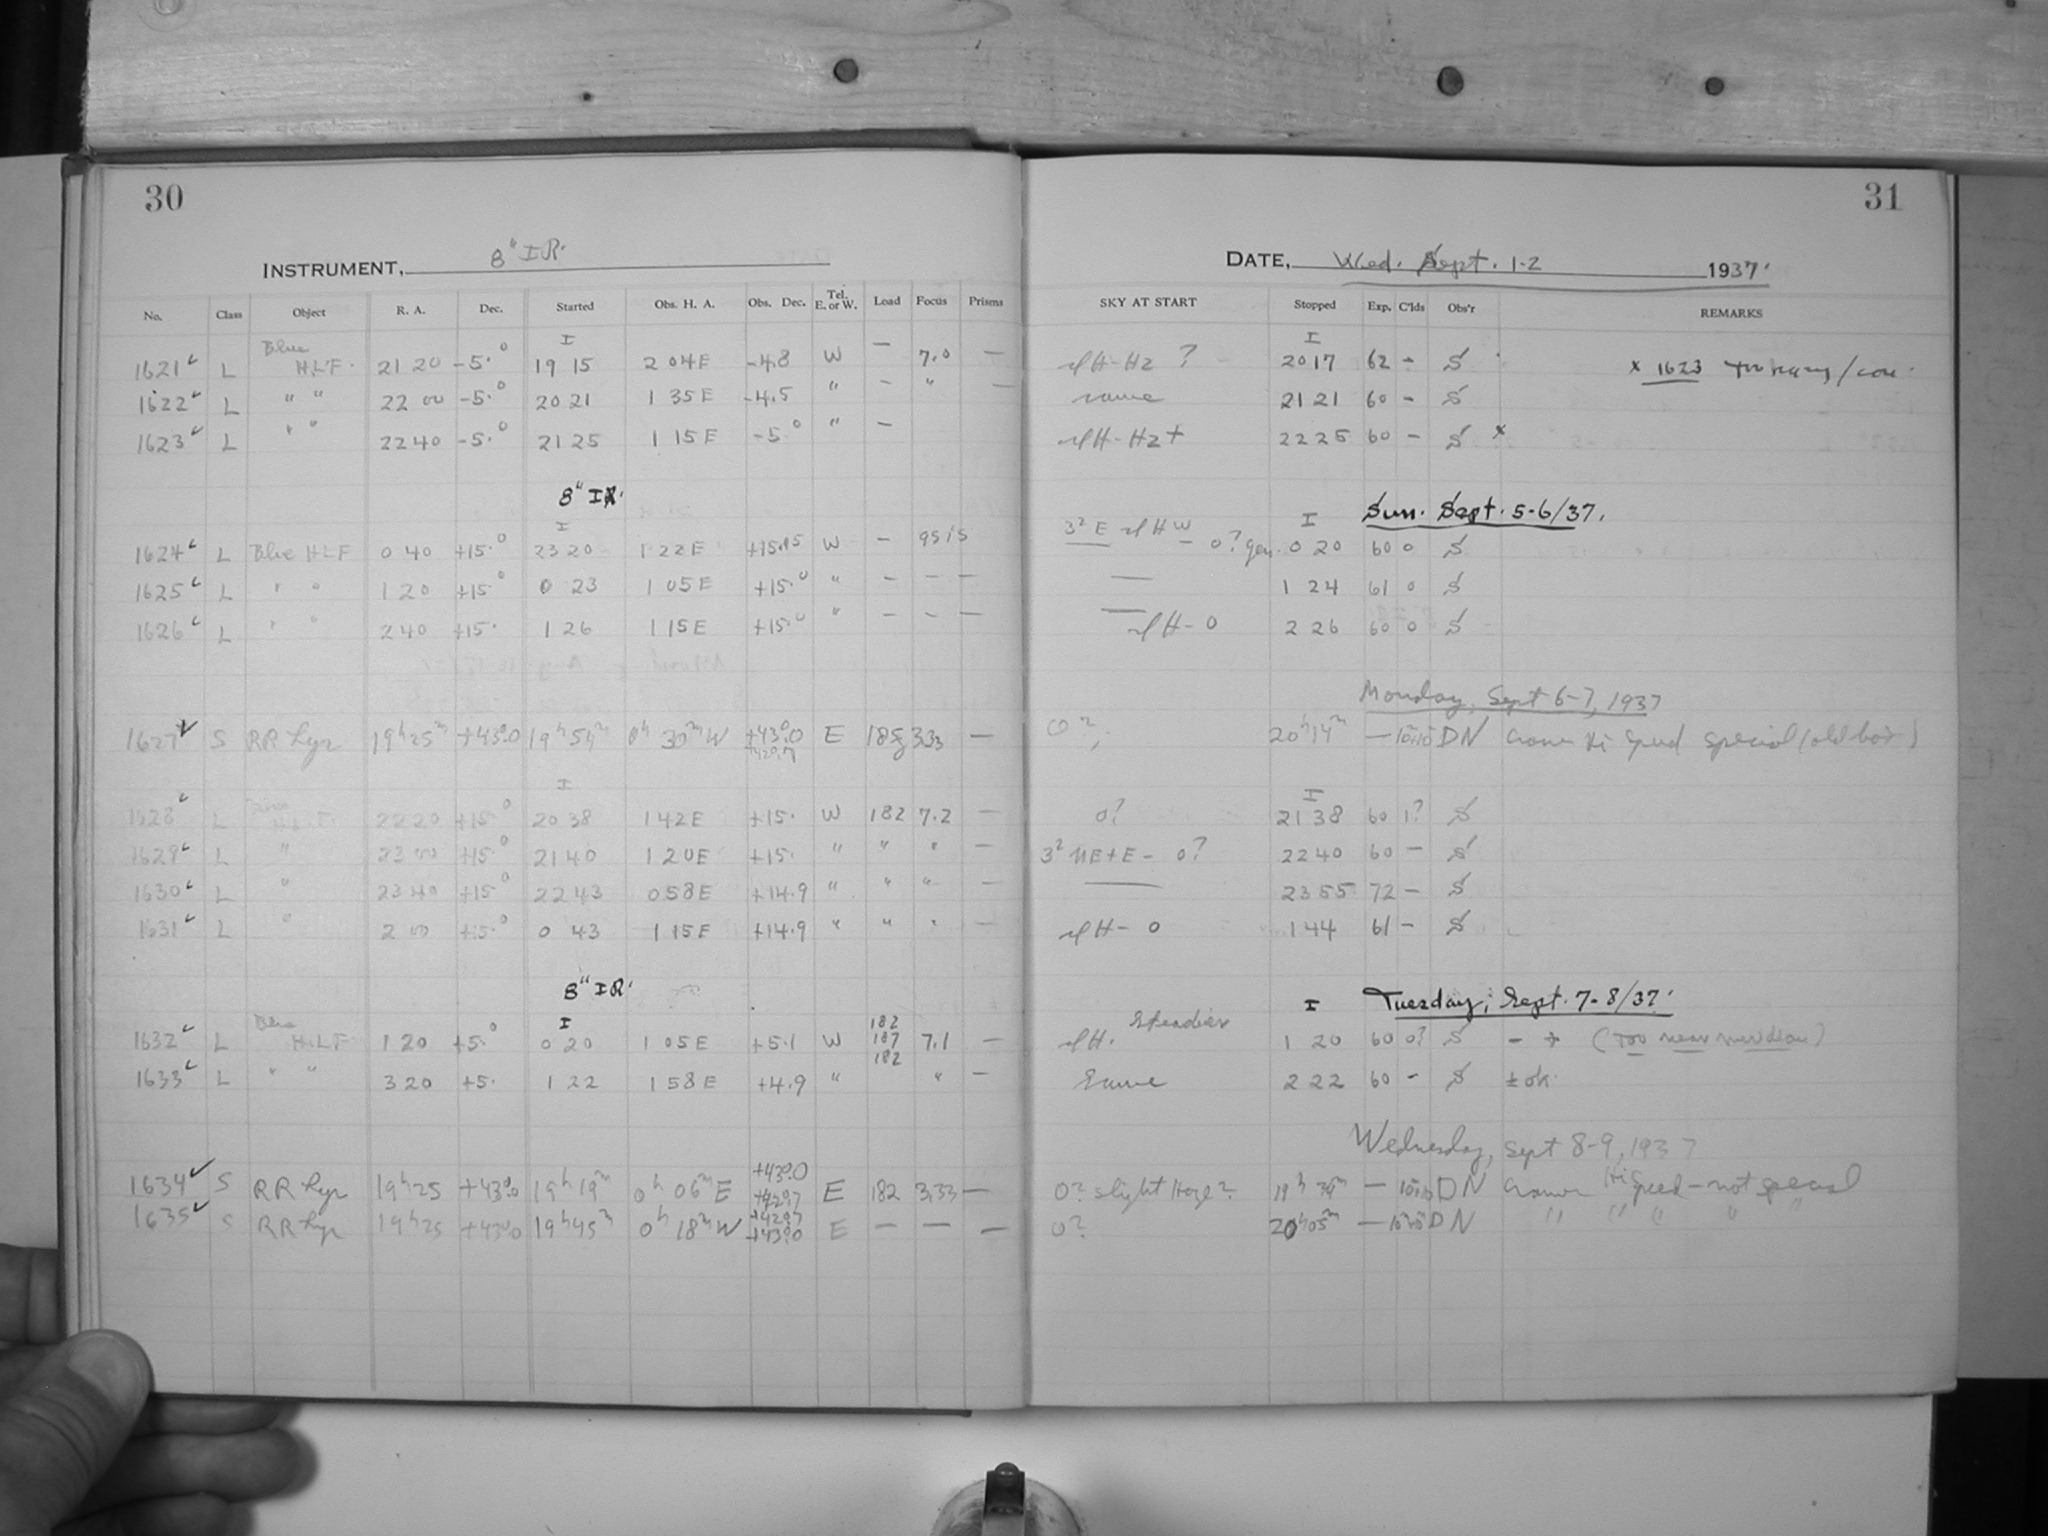 30
31
INSTRUMENT, 8" IR.
DATE, Wed. Sept. 1-2 1937.
No. Class Object R. A. Dec. Started Obs. H. A. Obs. Dec. Tel. E. or W. Load Focus Prisms SKY AT START Stopped Exp. C'lds Obs'r REMARKS
Blue I — I
1621 L H.L.F. 21 20 -5.° 19 15 2 04 E -4.8 W 7.0 — H-Hz ? 20 17 62 - S x 1623
1622 L " " 22 00 -5.° 20 21 1 35 E -4.5 " - " — same 21 21 60 - S
1623 L " " 22 40 -5.° 21 25 1 15 E -5.° " - H-Hz + 22 25 60 - S x
8" IR. Sun. Sept. 5-6/37.
I 3² E H W I
1624 L Blue HLF 0 40 +15.° 23 20 1 22 E +15.15 W - — 0? gen. 0 20 60 0 S
1625 L " " 1 20 +15° 0 23 1 05 E +15.° " - - — — 1 24 61 0 S
1626 L " " 2 40 +15. 1 26 1 15 E +15.° " - - — — H - 0 2 26 60 0 S
Monday, Sept 6-7, 1937
1627 S RR Lyr 19h25m +43.°0 19h54m 0h 30m W +43.°0 E 185 3.33 — 20h14m — DN Cramer Hi Speed Special (old box)
+42.°7
I I
1628 L H.L.F. 22 20 +15.° 20 38 1 42 E +15. W 182 7.2 — 0? 21 38 60 1? S
1629 L " 23 00 +15.° 21 40 1 20 E +15. " " " — 3² NE+E - 0? 22 40 60 - S
1630 L " 23 40 +15° 22 43 0 58 E +14.9 " " " — — 23 55 72 - S
1631 L " 2 00 +15.° 0 43 1 15 E +14.9 " " " — H - 0 1 44 61 - S
8" IR. I Tuesday, Sept. 7-8/37.
Blue I 182 Steadier
1632 L H.L.F 1 20 +5.° 0 20 1 05 E +5.1 W 187 7.1 — H. 1 20 60 0? S - + (Too near meridian)
182
1633 L " " 3 20 +5. 1 22 1 58 E +4.9 " " — Same 2 22 60 - S ± ok.
Wednesday, Sept 8-9, 1937
+43.°0
1634 S RR Lyr 19h25 +43.°0 19h19m 0h 06m E +42.°7 E 182 3.33 — 0? slight Haze? — DN Cramer Hi Speed - not special
+42.°7
1635 S RR Lyr 19h25 +43.°0 19h45m 0h 18m W +43.°0 E — — — 0? 20h05m — DN " " " " "